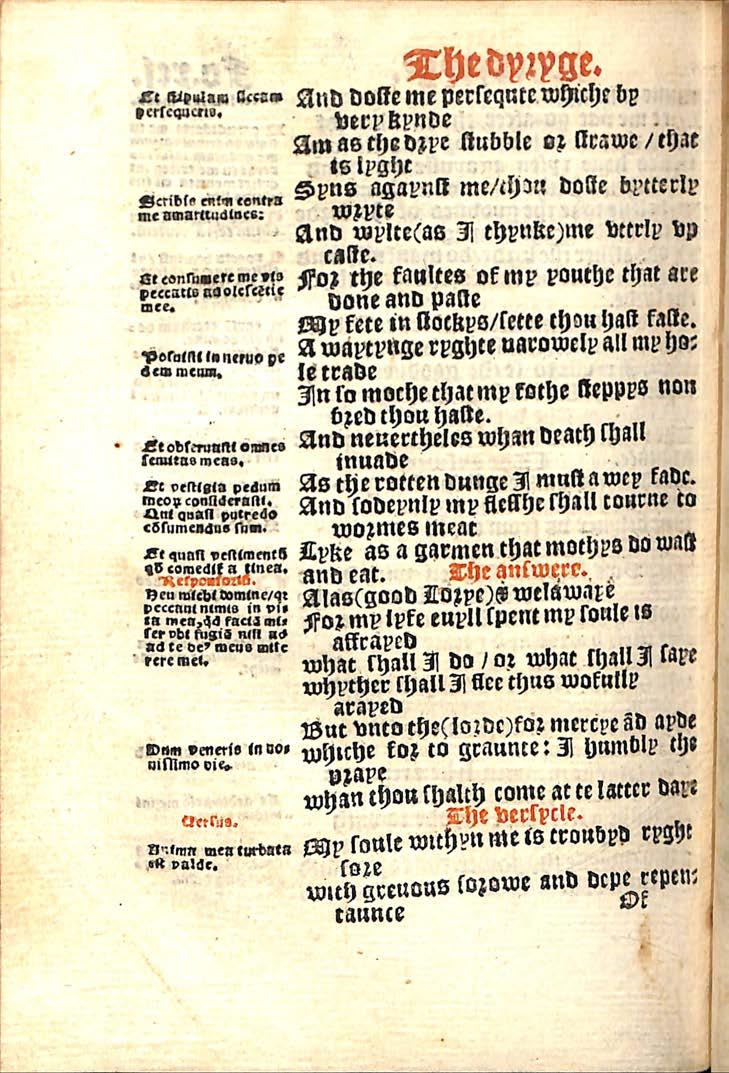 The dyryge.
Et stipulam siccam
persequeris.
And doste me persequte whiche by
very kynde
Am as the drye stubble or strawe / that
is lyght
Scribis enim contra
me amaritudines:
Syns agaynst me/thou doste bytterly
wryte
And wylte(as I thynke)me vtterly vp
caste.
Et consumere me vis
peccatis adolescẽtie
mee.
For the faultes of my youthe that are
done and paste
My fete in stockys/sette thou hast faste.
Posuisti in neruo pe
dem meum.
A waytynge ryghte narowely all my ho-
le trade
In so moche that my fothe steppys non
bred thou haste.
Et obseruasti omnes
semitas meas.
And neuertheles whan death shall
inuade
Et vestigia pedum
meoꝝ considerasti.
Qui quasi putredo
cõsumendus sum.
As the rotten dunge I must a wey fade.
And sodeynly my flesshe shall tourne to
wormes meat
Et quasi vestimentũ
qd̃ comedit a tinea.
Lyke as a garmen that mothys do wast
and eat.
Responsoriũ.
The answere.
Heu michi domine/qr
peccaui nimis in vi-
ta mea, qd faciã mi-
ser vbi fugiã nisi ad
ad te deꝰ meus mise
rere mei.
Alas(good Lorye) welawaye
For my lyfe euyll spent my soule is
affrayed
what shall I do / or what shall I saye
whyther shall I flee thus wofully
arayed
But vnto the(lorde)for mercye ãd ayde
Dum veneris in no-
uissimo die.
whiche for to graunte: I humbly the
praye
whan thou shalth come at te latter daye
Versus.
The versycle.
Anima mea turbata
est valde.
My soule withyn me is troubyd ryght
sore
with greuous sorowe and depe repen-
taunce
Of